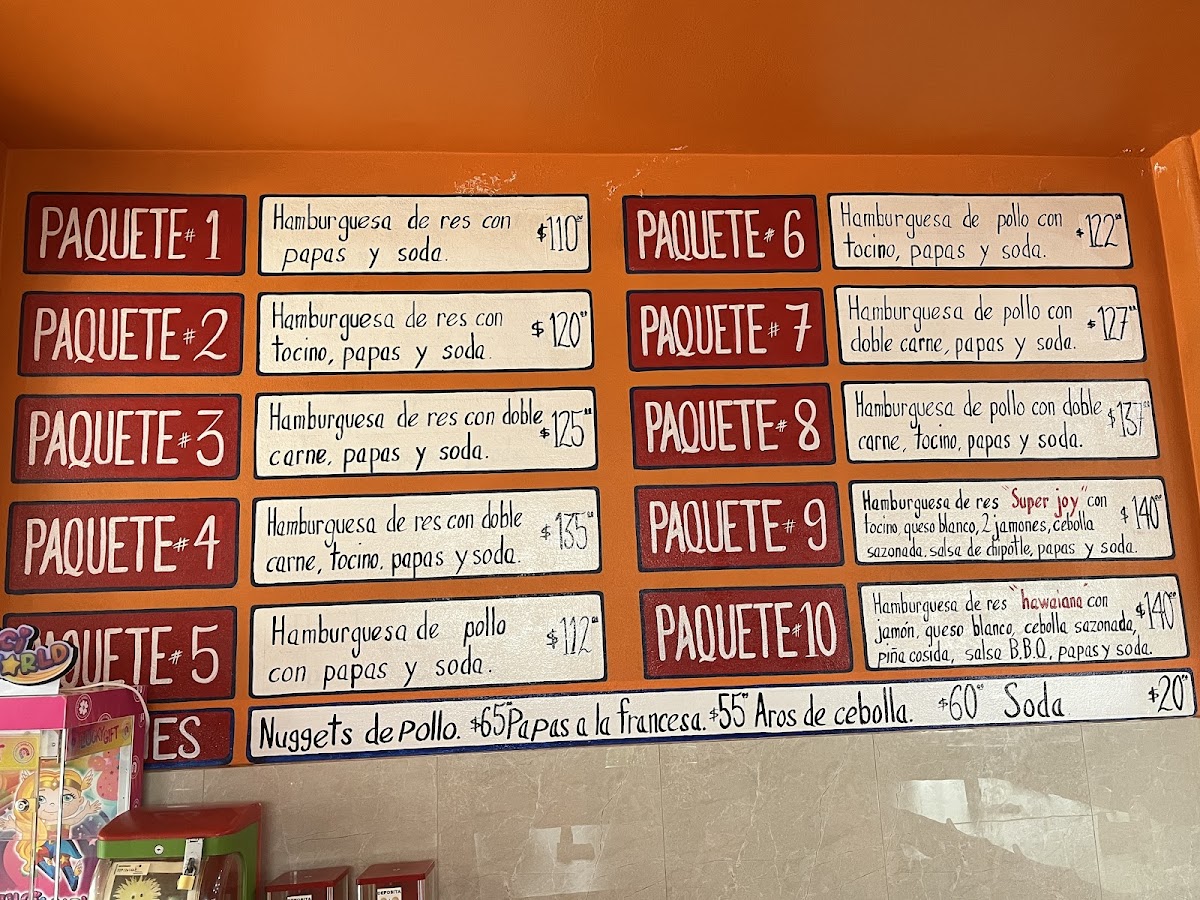 PAQUETE #1
Hamburguesa de res con
papas y soda.
$110.00
PAQUETE #2
Hamburguesa de res con
tocino, papas y soda.
$120.00
PAQUETE #3
Hamburguesa de res con doble
carne, papas y soda.
$125.00
PAQUETE #4
Hamburguesa de res con doble
carne, tocino, papas y soda.
$135.00
PAQUETE #5
Hamburguesa de pollo
con papas y soda.
$112.00
PAQUETE #6
Hamburguesa de pollo con
tocino, papas y soda.
$122.00
PAQUETE #7
Hamburguesa de pollo con
doble carne, papas y soda.
$127.00
PAQUETE #8
Hamburguesa de pollo con doble
carne, tocino, papas y soda.
$137.00
PAQUETE #9
Hamburguesa de res "Super joy" con
tocino queso blanco, 2 jamones, cebolla
sazonada, salsa de chipotle, papas y soda.
$140.00
PAQUETE #10
Hamburguesa de res "hawaiana" con
jamón, queso blanco, cebolla sazonada,
piña cosida, salsa B.B.Q, papas y soda.
$140.00
ES
Nuggets de Pollo. $65.00 Papas a la francesa. $55.00 Aros de cebolla. $60.00 Soda $20.00
DEPOSITA
DEPOSITA